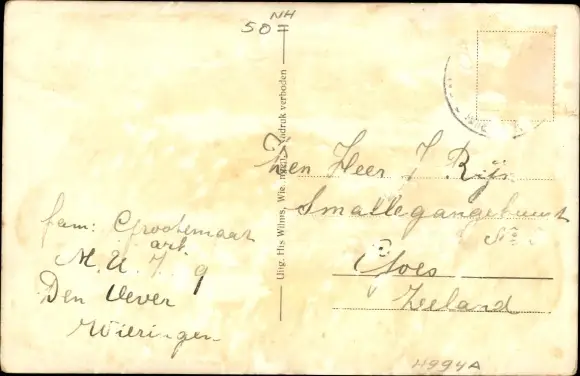 NH
50=
Uitg. Hts Wilms, Wieringen. Nadruk verboden
Den Heer J Rijn
Smallegangebuurt
No
Goes
Zeeland
fam: Grootemaat
ark
M. U. 7. 9
Den Oever
Wieringen
H994A